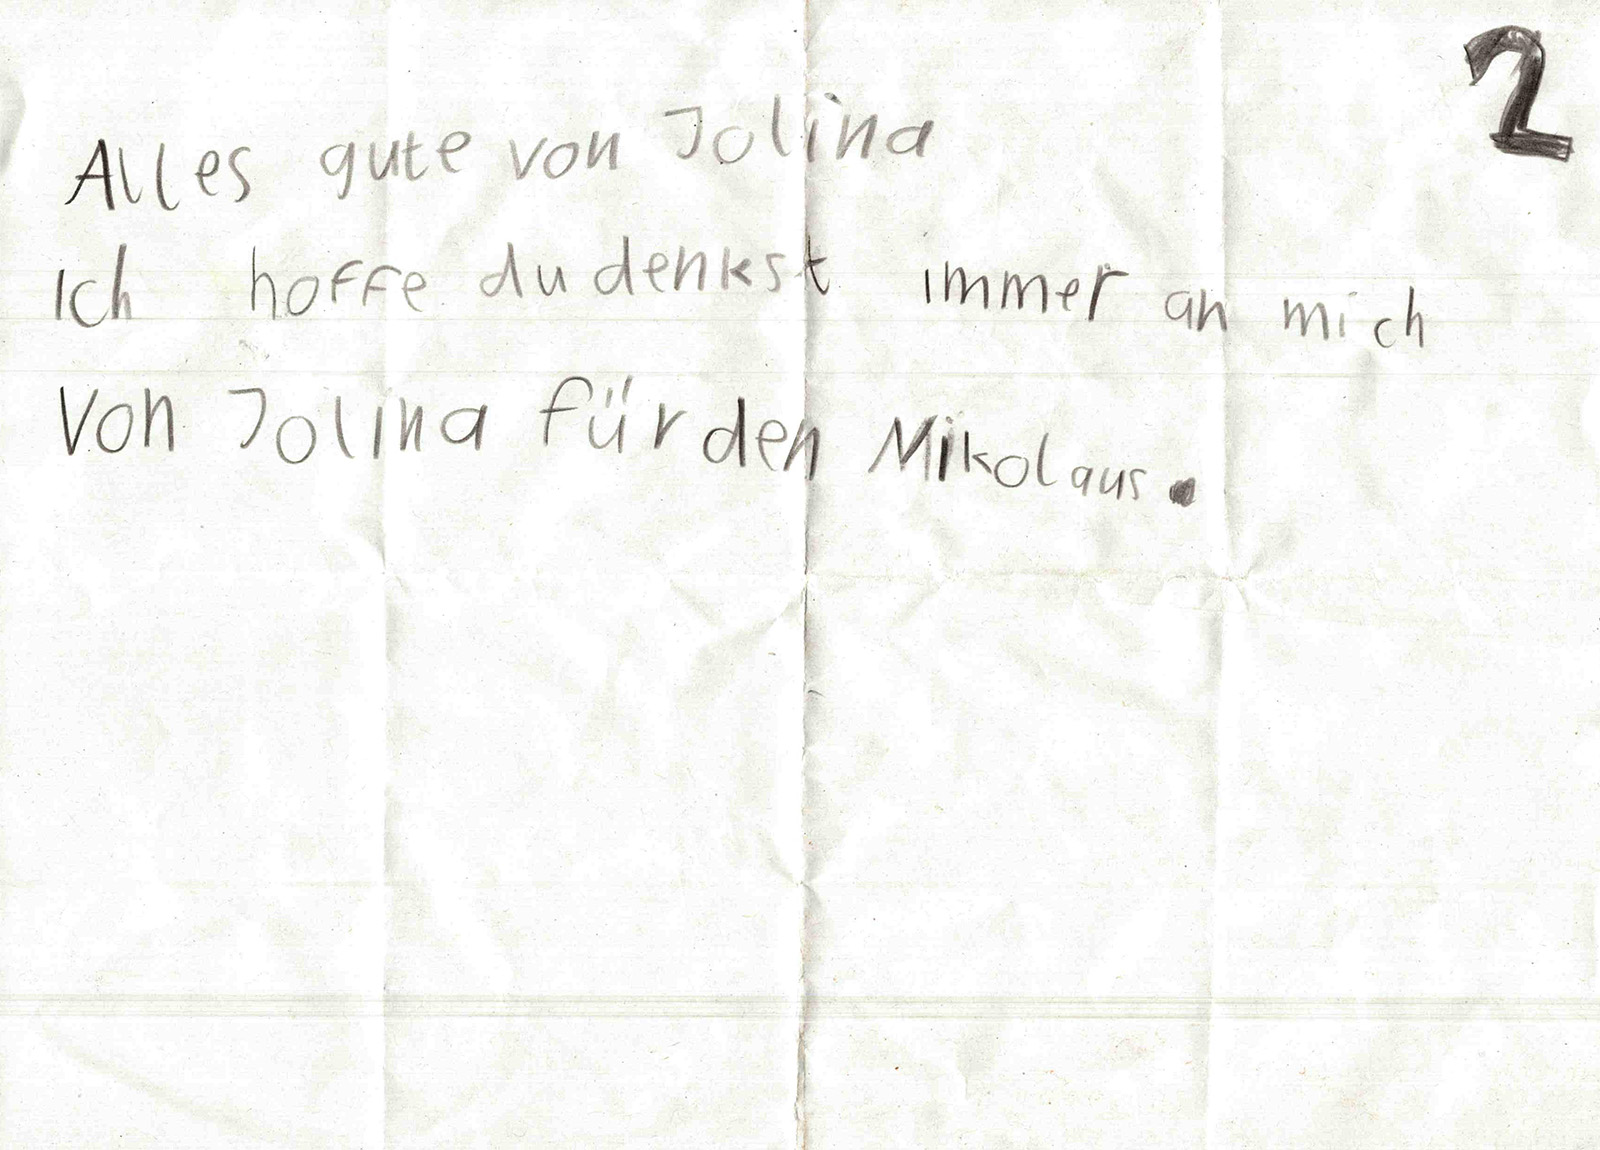 2
Alles gute von Jolina
Ich hoffe du denkst immer an mich
Von Jolina für den Nikolaus.